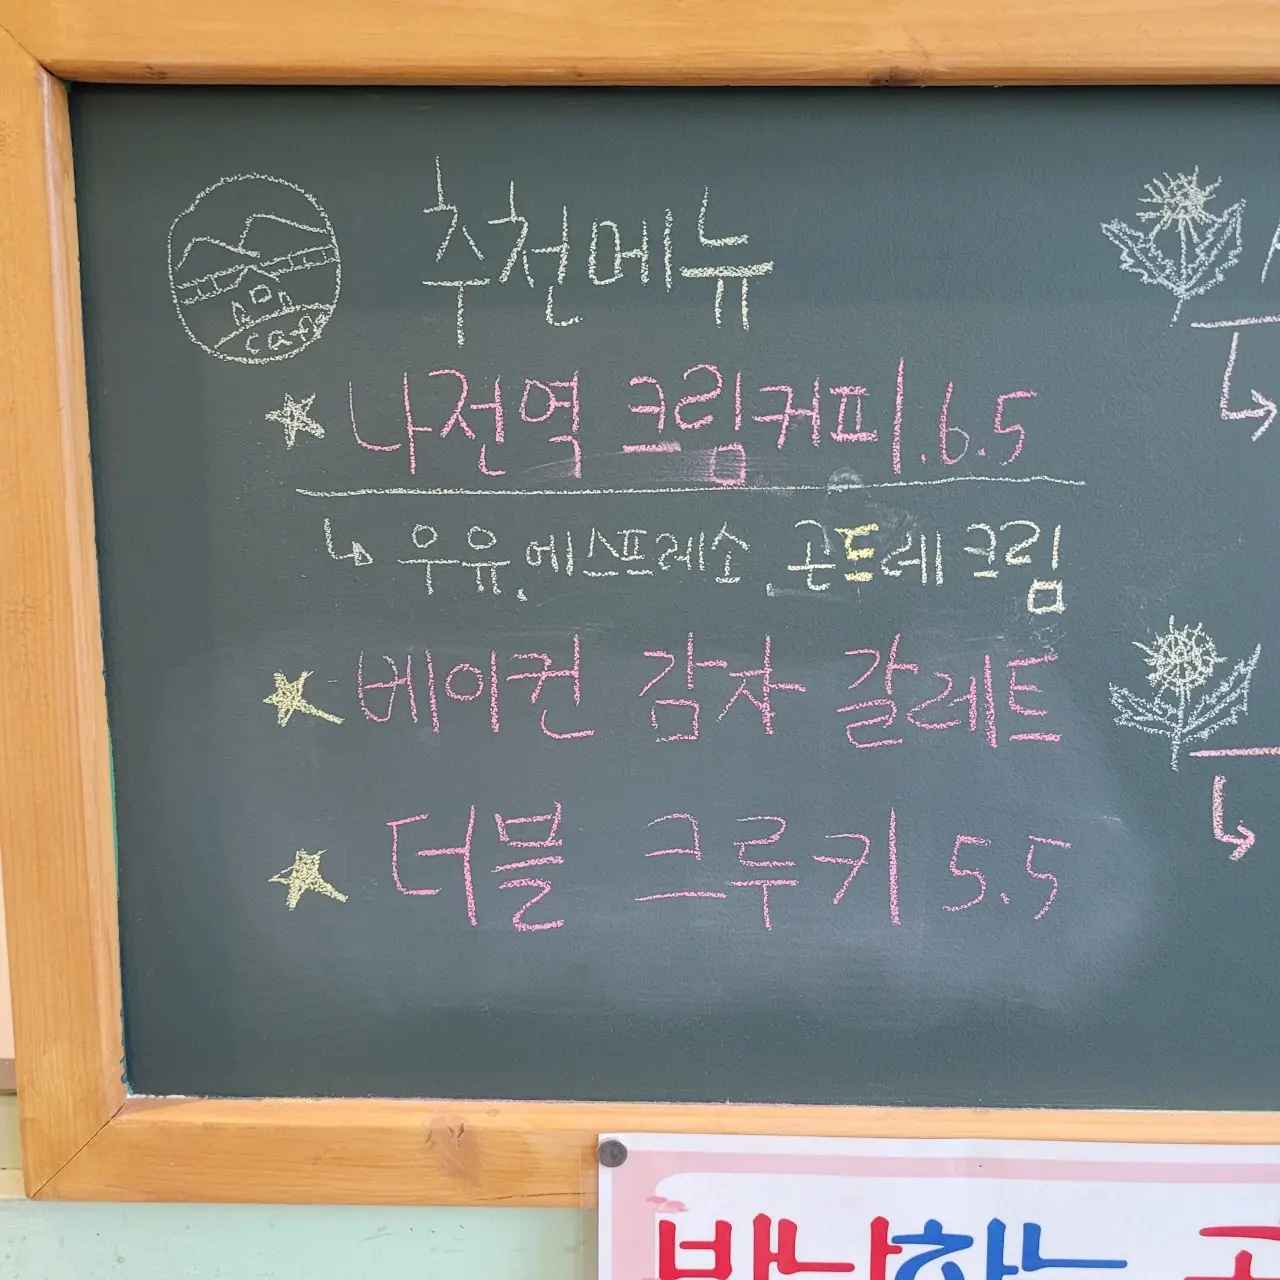 cafe
추천메뉴
나전역 크림커피.6.5
우유.에스프레소.곤드레 크림
베이컨 감자 갈레트
더블 크루키 5.5